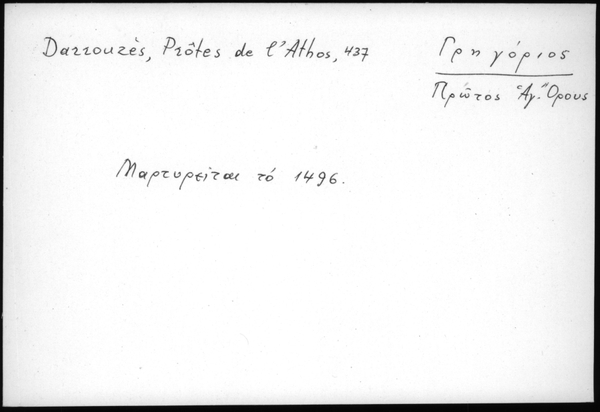 Darrouzès, Prôtes de l'Athos, 437
Γρηγόριος
Πρῶτος Ἁγ. Ὄρους
Μαρτυρεῖται τό 1496.